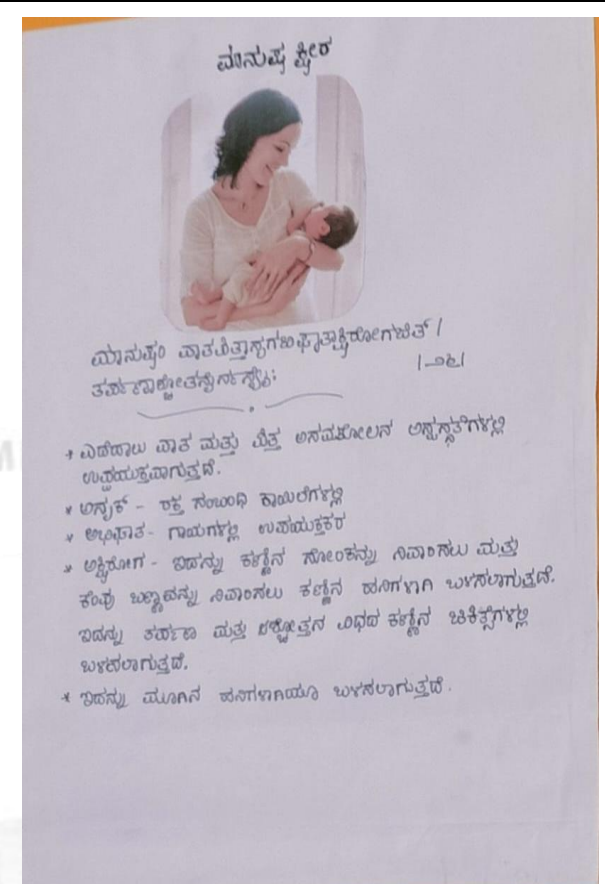 ಮಾನುಷ ಕ್ಷೀರ
ಮಾನುಷಂ ವಾತಪಿತ್ತಾಸೃಗಭಿಘಾತಾಕ್ಷಿರೋಗಜಿತ್ |
ತರ್ಪಣಾಶ್ಚೋತನೈರ್ನಸ್ಯೈಃ |೨೬|
* ಎದೆಹಾಲು ವಾತ ಮತ್ತು ಪಿತ್ತ ಅಸಮತೋಲನ ಅಸ್ವಸ್ಥತೆಗಳಲ್ಲಿ
ಉಪಯುಕ್ತವಾಗುತ್ತದೆ.
* ಅಸೃಕ್ - ರಕ್ತ ಸಂಬಂಧಿ ಕಾಯಿಲೆಗಳಲ್ಲಿ
* ಅಭಿಘಾತ - ಗಾಯಗಳಲ್ಲಿ ಉಪಯುಕ್ತಕರ
* ಅಕ್ಷಿರೋಗ - ಇದನ್ನು ಕಣ್ಣಿನ ಸೋಂಕನ್ನು ನಿವಾರಿಸಲು ಮತ್ತು
ಕೆಂಪು ಬಣ್ಣವನ್ನು ನಿವಾರಿಸಲು ಕಣ್ಣಿನ ಹನಿಗಳಾಗಿ ಬಳಸಲಾಗುತ್ತದೆ.
ಇದನ್ನು ತರ್ಪಣ ಮತ್ತು ವಿಧದ ಕಣ್ಣಿನ ಚಿಕಿತ್ಸೆಗಳಲ್ಲಿ
ಬಳಸಲಾಗುತ್ತದೆ.
* ಇದನ್ನು ಮೂಗಿನ ಹನಿಗಳಾಗಿಯೂ ಬಳಸಲಾಗುತ್ತದೆ.